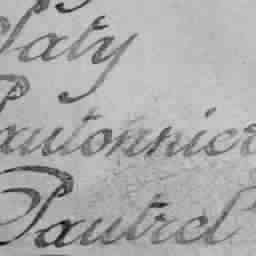 Paty
Pautonnier
Pautrel